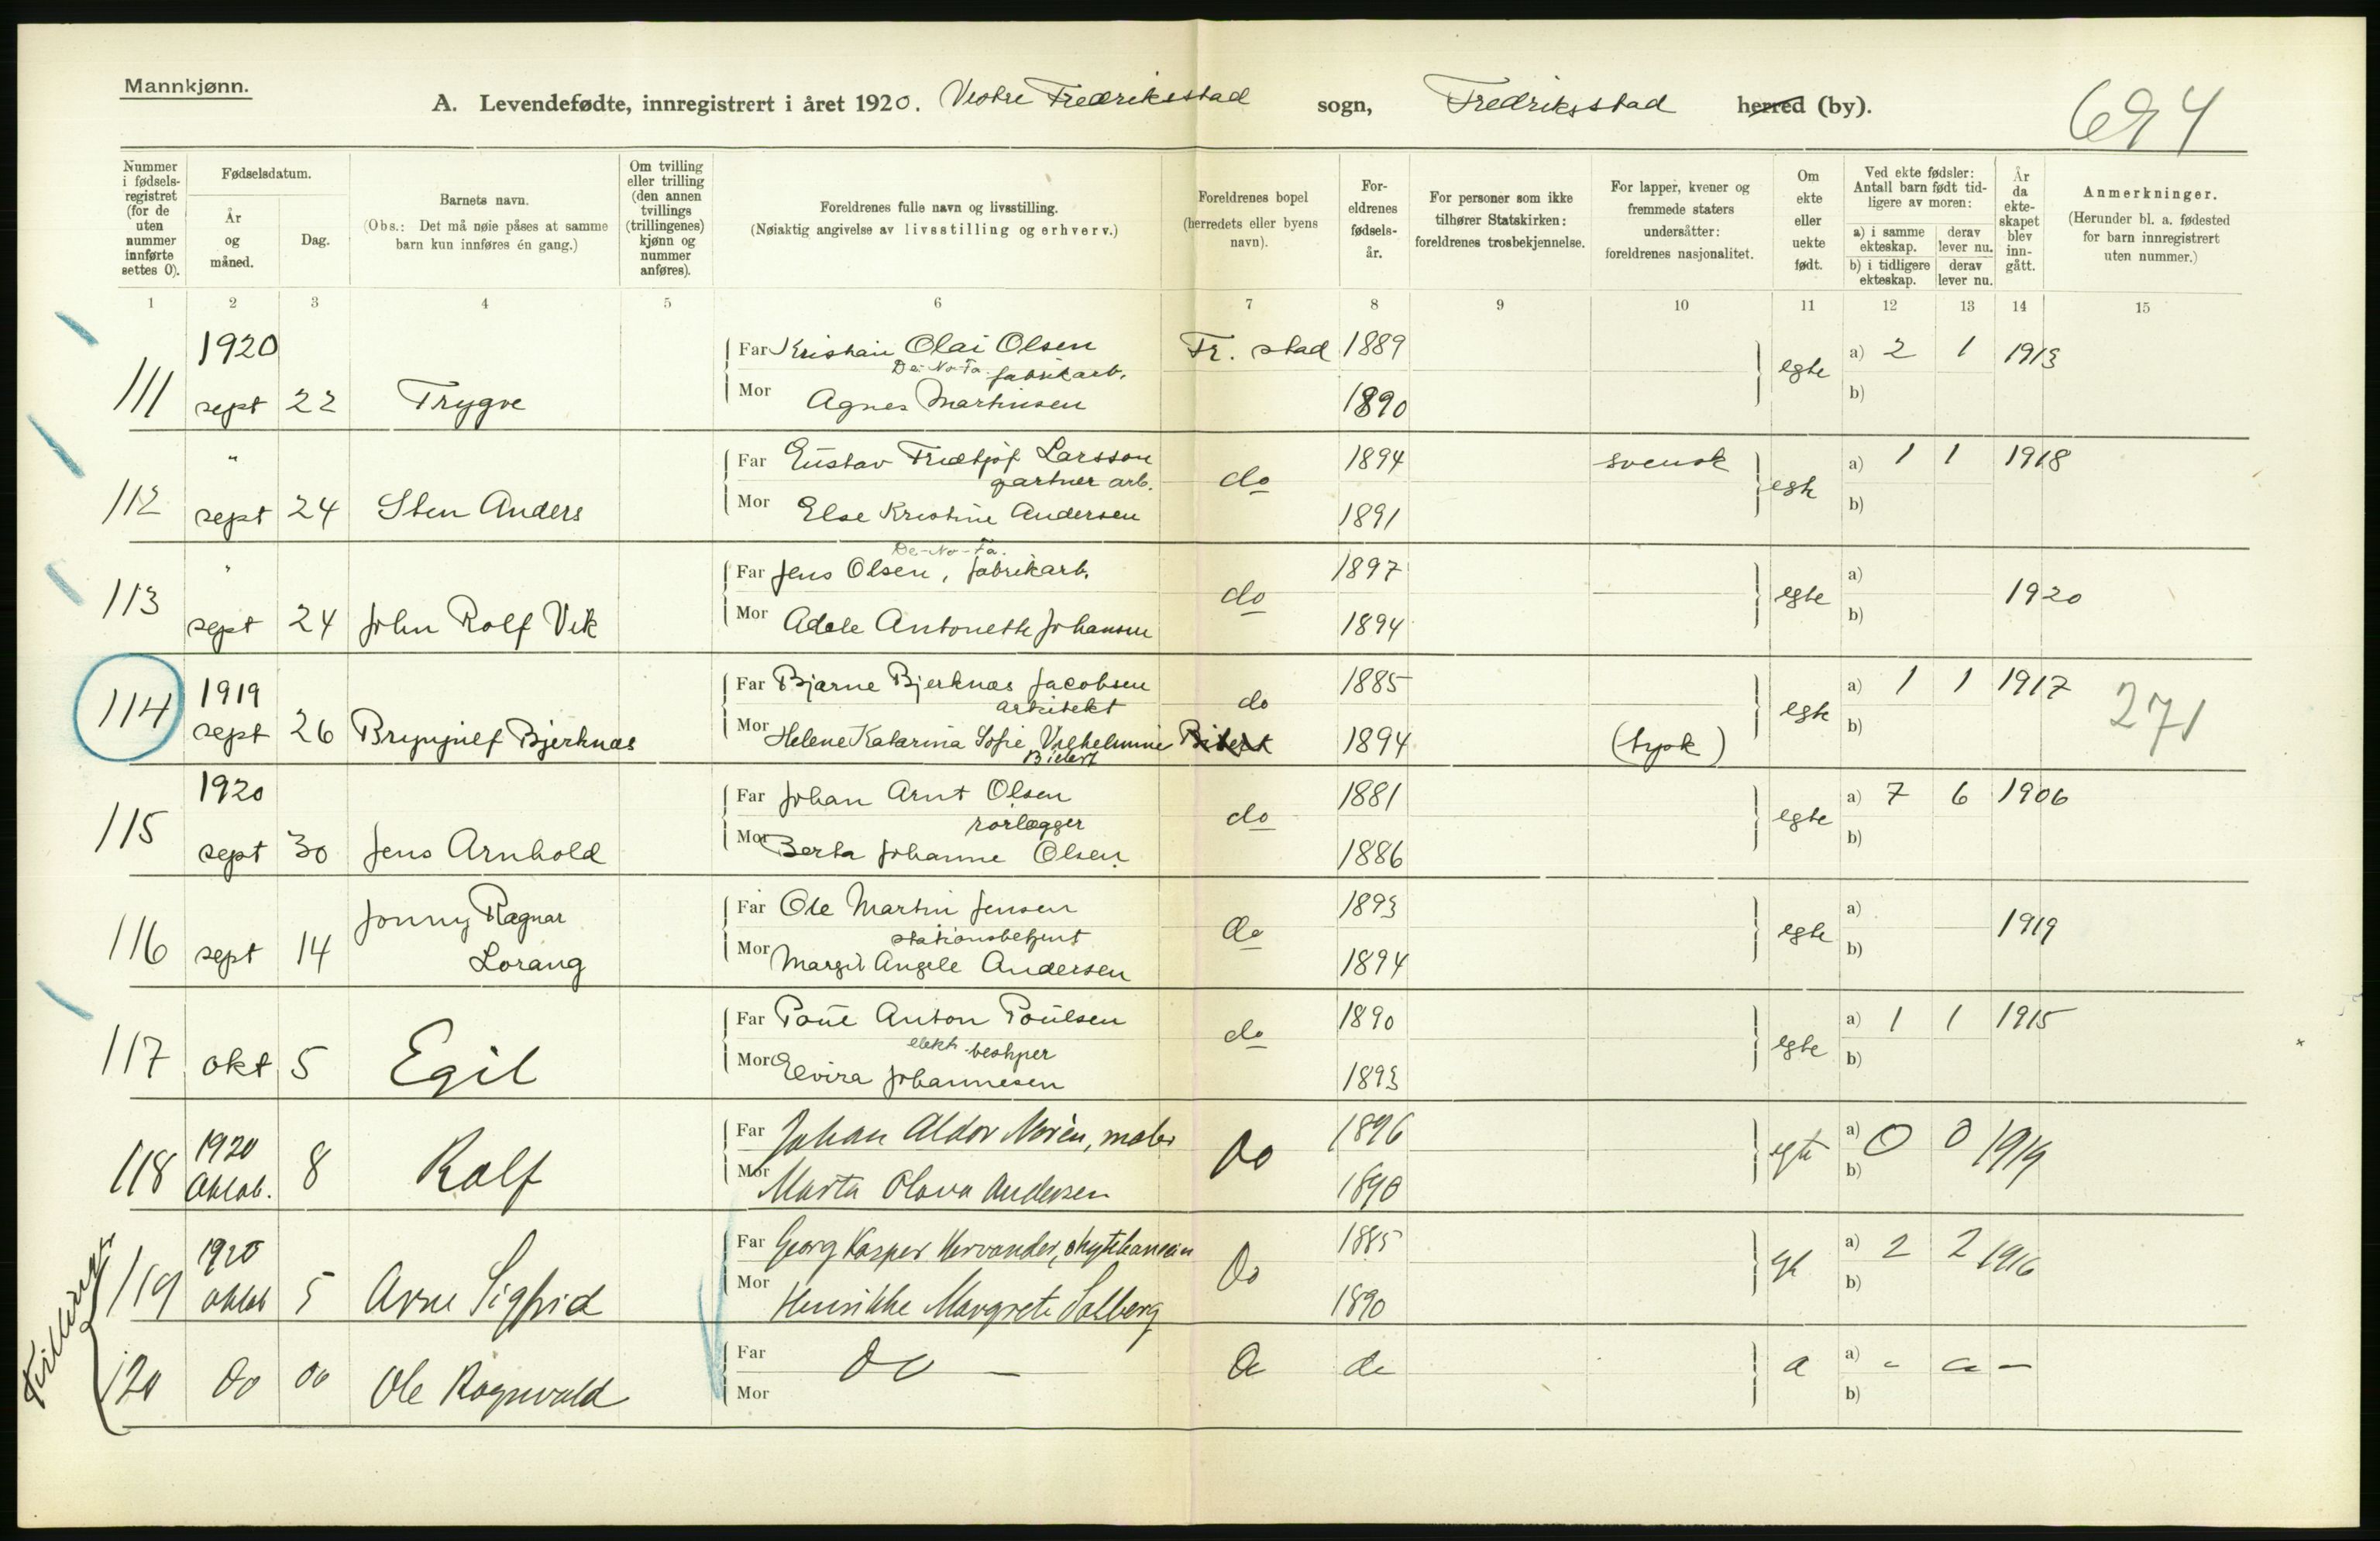 Mannkjønn.
A. Levendefødte, innregistrert i året 1920. Vestre Fredriksstad sogn, Fredriksstad herred (by).
694
Nummer i fødsels-registret (for de uten nummer innførte settes 0).
Fødselsdatum.
År og måned.
Dag.
Barnets navn.
(Obs.: Det må nøie påses at samme barn kun innføres én gang.)
Om tvilling eller trilling (den annen tvillings (trillingenes) kjønn og nummer anføres).
Foreldrenes fulle navn og livsstilling.
(Nøiaktig angivelse av livsstilling og erhverv.)
Foreldrenes bopel (herredets eller byens navn).
For-eldrenes fødsels-år.
For personer som ikke tilhører Statskirken: foreldrenes trosbekjennelse.
For lapper, kvener og fremmede staters undersåtter: foreldrenes nasjonalitet.
Om ekte eller uekte født.
Ved ekte fødsler: Antall barn født tid-ligere av moren:
a) i samme ekteskap. derav lever nu.
b) i tidligere ekteskap. derav lever nu.
År da ekte-skapet blev inn-gått.
Anmerkninger.
(Herunder bl. a. fødested for barn innregistrert uten nummer.)
1 2 3 4 5 6 7 8 9 10 11 12 13 14 15
1920 Far Kristian Olai Olsen Fr. stad 1889 egte a) 2 1 1913
De-No-Fa. fabrikarb.
111 sept 22 Trygve Mor Agnes Martinsen 1890 b)
" Far Gustav Fridtjof Larsson do 1894 svensk egte a) 1 1 1918
gartner arb.
112 sept 24 Sten Anders Mor Else Kristine Andersen 1891 b)
De-No-Fa.
" Far Jens Olsen, fabrikarb. do 1897 egte a) 1920
113 sept 24 John Rolf Vik Mor Adele Antonette Johansen 1894 b)
1919 Far Bjarne Bjerknæs Jacobsen do 1885 egte a) 1 1 1917 271
arkitekt
114 sept 26 Brynjulf Bjerknæs Mor Helene Katarina Sofie Vilhelmine 1894 (tysk) b)
Bielert
1920 Far Johan Arnt Olsen do 1881 egte a) 7 6 1906
rørlægger
115 sept 30 Jens Arnhold Mor Berta Johanne Olsen 1886 b)
Jonny Ragnar Far Ole Martin Jensen do 1893 egte a) 1919
stationsbetjent
116 sept 14 Lorang Mor Margit Angele Andersen 1894 b)
Far Poul Anton Poulsen do 1890 egte a) 1 1 1915
elekt. bestyrer
117 okt 5 Egil Mor Elvira Johannesen 1893 b)
1920 Far Johan Aldor Norèn, maler Do 1896 egte a) 0 0 1919
118 Oktob. 8 Rolf Mor Marta Olava Andersen 1890 b)
1920 Far Georg Kasper Hervander, Do 1885 a) 2 2 1916
119 oktob 5 Arne Sigfrid Mor Henrikke Margrete Solberg 1890 b)
Far Do — do do a)
120 Do Do Ole Ragnvald Mor b)
Tvillinger